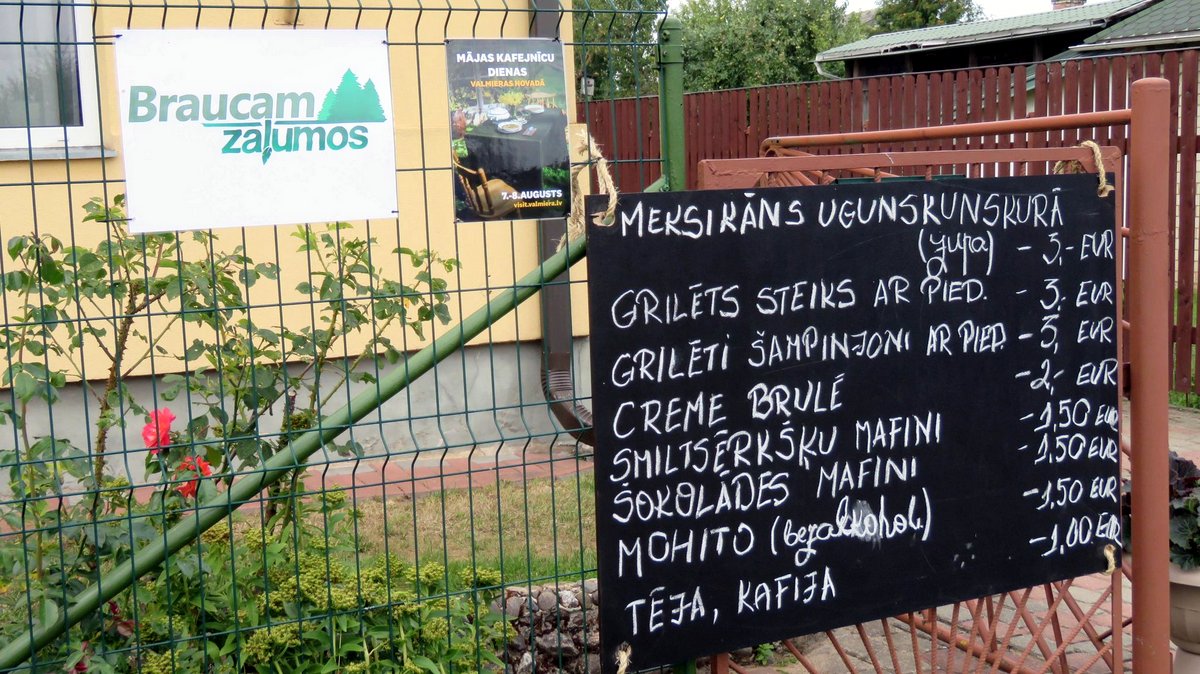 Braucam
zaļumos
MĀJAS KAFEJNĪCU
DIENAS
VALMIERAS NOVADĀ
7.-8.AUGUSTS
visit.valmiera.lv
MEKSIKĀNS UGUNSKUNSKURĀ
(zupa) - 3,- EUR
GRILĒTS STEIKS AR PIED. - 3. EUR
GRILĒTI ŠAMPINJONI AR PIED. - 3, EUR
CREME BRULĒ -2,- EUR
SMILTSĒRKŠĶU MAFINI -1,50 EUR
ŠOKOLĀDES MAFINI -1,50 EUR
MOHITO (bezalkohol.) -1,50 EUR
TĒJA, KAFIJA -1,00 EUR